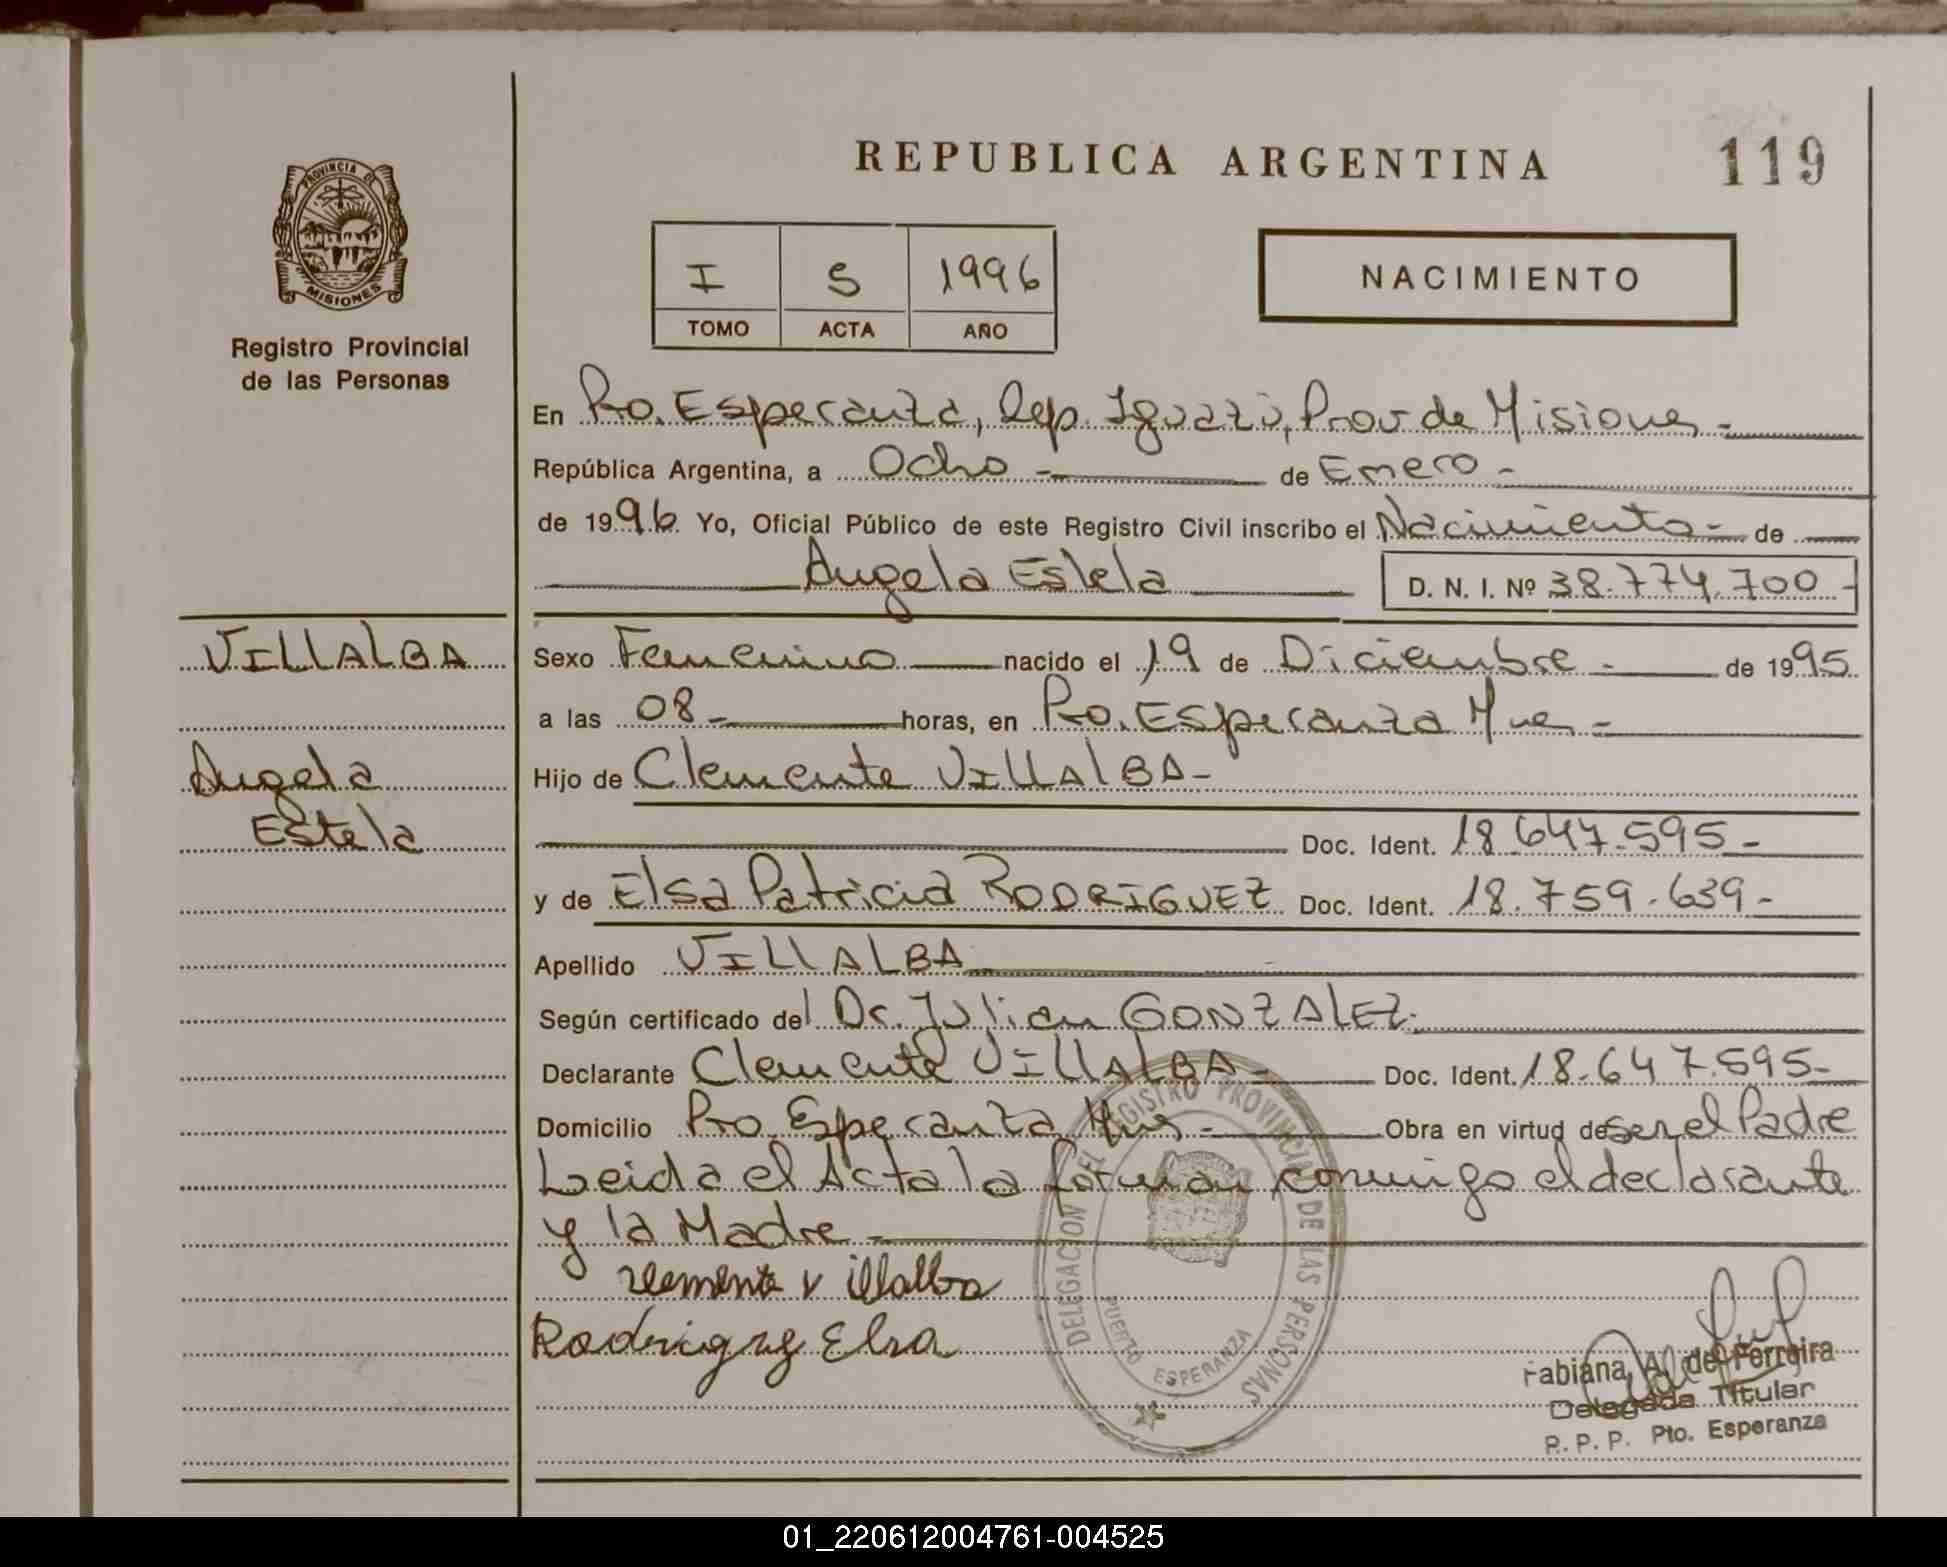 REPUBLICA ARGENTINA
119
PROVINCIA DE
MISIONES
Registro Provincial
de las Personas
I S 1996
TOMO ACTA AÑO
NACIMIENTO
En Pto. Esperanza, Dep. Iguazú, Prov de Misiones -
República Argentina, a Ocho - de Enero -
de 1996. Yo, Oficial Público de este Registro Civil inscribo el Nacimiento - de
Angela Estela D. N. I. Nº 38.774.700 -
VILLALBA
Angela
Estela
Sexo Femenino nacido el 19 de Diciembre - de 1995
a las 08 - horas, en Pto. Esperanza Mnes -
Hijo de Clemente VILLALBA -
Doc. Ident. 18.647.595 -
y de Elsa Patricia RODRIGUEZ Doc. Ident. 18.759.639 -
Apellido VILLALBA
Según certificado del Dr. Julian GONZALEZ.
Declarante Clemente VILLALBA - Doc. Ident. 18.647.595 -
Domicilio Pto Esperanza Mns - Obra en virtud de ser el Padre
Leida el Acta la forman conmigo el declarante
y la Madre -
clemente villalba
Rodriguez Elsa
DELEGACION DEL REGISTRO PROVINCIAL DE LAS PERSONAS
PUERTO ESPERANZA
Fabiana A. de Ferreira
Delegada Titular
R. P. P. Pto. Esperanza
01_220612004761-004525